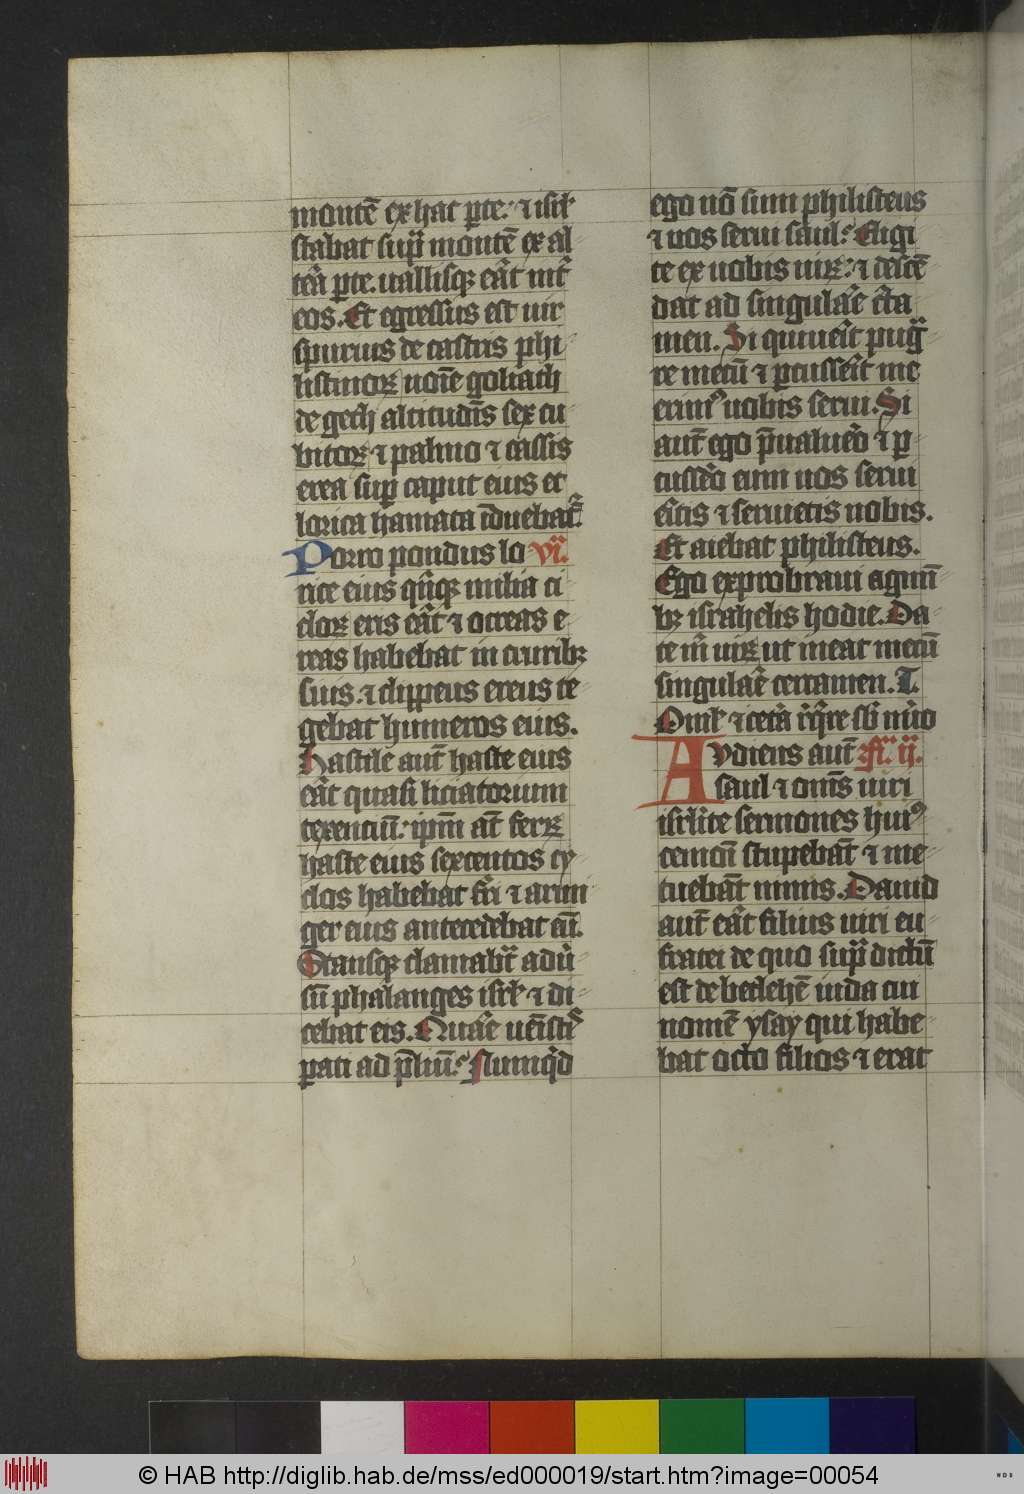 montē ex hac ꝑte: ⁊ isrl̄
stabat sup̄ montē ex al
tēa ꝑte. uallisqꝫ eāt int̄
eos. Et egressus est uir
spurius de castris phi
listinoꝝ noīe goliath
de geth altitudīs sex cu
bitoꝝ ⁊ palmo ⁊ cassis
erea suꝑ caput eius et
lorica hamata īduebat᷑.
Porro pondus lo vi.
rice eius qn̄qꝫ milia ci
cloꝝ eris eāt ⁊ ocreas e
reas habebat in cruribꝫ
suis. ⁊ clippeus ereus te
gebat humeros eius.
Hastile aut̄ haste eius
eāt quasi liciatorium
texenciū: ipm̄ at̄ ferꝝ
haste eius sexcentos cy
clos habebat fr̄i ⁊ armi
ger eius antecedebat eū.
Stansqꝫ clamabat̄ adu̾
sū phalanges isrl̄ ⁊ di
cebat eis. Quāe uēistꝭ
parati ad p̄liū: Numqͥd
ego nō sum philisteus
⁊ uos serui saul: Eligi
te ex uobis uiꝝ: ⁊ descē
dat ad singulāe c̄ta
men. Si quiueīt puḡ
re mecū ⁊ ꝑcusseīt me
erimꝰ uobis serui. Si
aut̄ ego p̄ualueō ⁊ ꝑ
cusseō eum uos serui
eītis ⁊ seruietis nobis.
Et aiebat philisteus.
Ego exprobraui agmī
bꝫ israhelis hodie. Da
te m̄ uiꝝ ut ineat mecū
singulāe certamen. T.
Om̄s ⁊ cetā rͥqͥre sb̄ nūo
Audiens aut̄ Fr̄. ij.
saul ⁊ om̄s uiri
isrl̄ite sermones huiꝰ
cemōi stupebāt ⁊ me
tuebāt nimis. Dauid
aut̄ eāt filius uiri eu
fratei de quo sup̄ dictū
est de bethlehē iuda cui
nomē ysay qui habe
bat octo filios ⁊ erat
© HAB http://diglib.hab.de/mss/ed000019/start.htm?image=00054